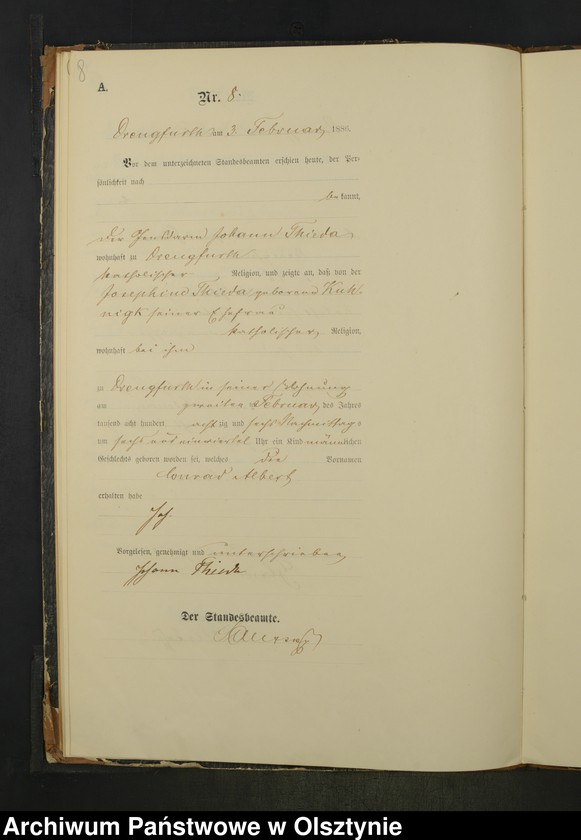 8
A.
Nr. 8.
Drengfurth am 3. Februar 1886.
Vor dem unterzeichneten Standesbeamten erschien heute, der Per-
sönlichkeit nach
bekannt,
der Gendarm Johann Thieda
wohnhaft zu Drengfurth
katholischer Religion, und zeigte an, daß von der
Josephine Thieda geborene Kuh-
nigk seiner Ehefrau
katholischer Religion,
wohnhaft bei ihm
zu Drengfurth in seiner Wohnung
am zweiten Februar des Jahres
tausend acht hundert achtzig und sechs Nachmittags
um sechs und einviertel Uhr ein Kind männlichen
Geschlechts geboren worden sei, welches die Vornamen
Conrad Albert
erhalten habe
Vorgelesen, genehmigt und unterschrieben
Johann Thieda
Der Standesbeamte.
Archiwum Państwowe w Olsztynie